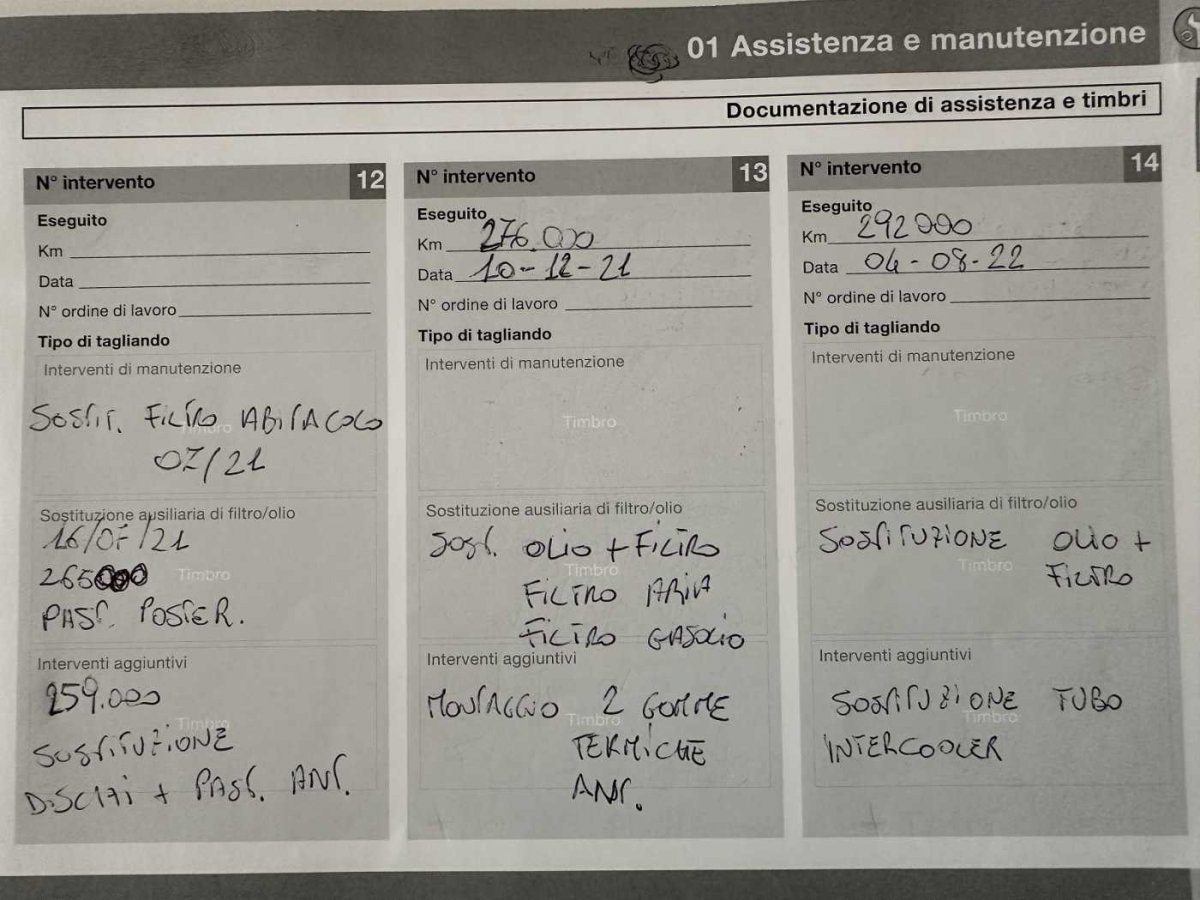 01 Assistenza e manutenzione
Documentazione di assistenza e timbri
N° intervento 12
Eseguito
Km
Data
N° ordine di lavoro
Tipo di tagliando
Interventi di manutenzione
Timbro
SOSTIT. FILTRO ABITACOLO
07/21
Sostituzione ausiliaria di filtro/olio
16/07/21
265000
Timbro
PAST. POSTER.
Interventi aggiuntivi
259.000
Timbro
SOSTITUZIONE
DISCHI + PAST. ANT.
N° intervento 13
Eseguito
Km 276.000
Data 10-12-21
N° ordine di lavoro
Tipo di tagliando
Interventi di manutenzione
Timbro
Sostituzione ausiliaria di filtro/olio
SOST. OLIO + FILTRO
Timbro
FILTRO ARIA
FILTRO GASOLIO
Interventi aggiuntivi
MONTAGGIO 2 GOMME
Timbro
TERMICHE
ANT.
N° intervento 14
Eseguito
Km 292000
Data 04-08-22
N° ordine di lavoro
Tipo di tagliando
Interventi di manutenzione
Timbro
Sostituzione ausiliaria di filtro/olio
SOSTITUZIONE OLIO +
Timbro
FILTRO
Interventi aggiuntivi
SOSTITUZIONE TUBO
Timbro
INTERCOOLER